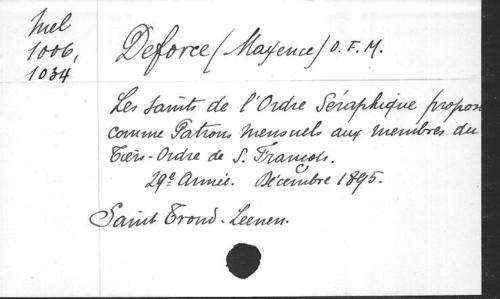 Mel
1006,
1034
Deforce (Maxence) O.F.M.
Les saints de l'Ordre Séraphique propos
comme Patrons mensuels aux membres du
Tiers-Ordre de S. François.
29e Année. Décembre 1895.
Saint Trond. Leenen.